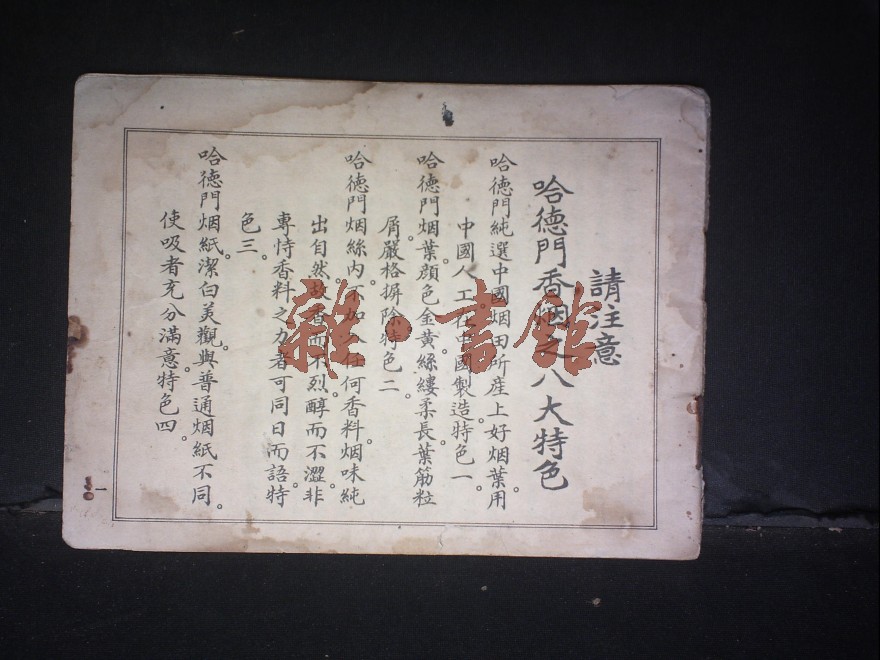 請注意
哈德門香烟之八大特色
哈德門純選中國烟田所産上好烟葉。用
中國人工在中國製造。特色一。
哈德門烟葉。顏色金黃。絲縷柔長。葉筋粒
屑。嚴格摒除。特色二。
哈德門烟絲內。不加任何香料。烟味純
出自然。故香而不烈。醇而不澀。非
專恃香料之力者可同日而語。特
色三。
哈德門烟紙。潔白美觀。與普通烟紙不同。
使吸者充分滿意。特色四。
一
雜·書館